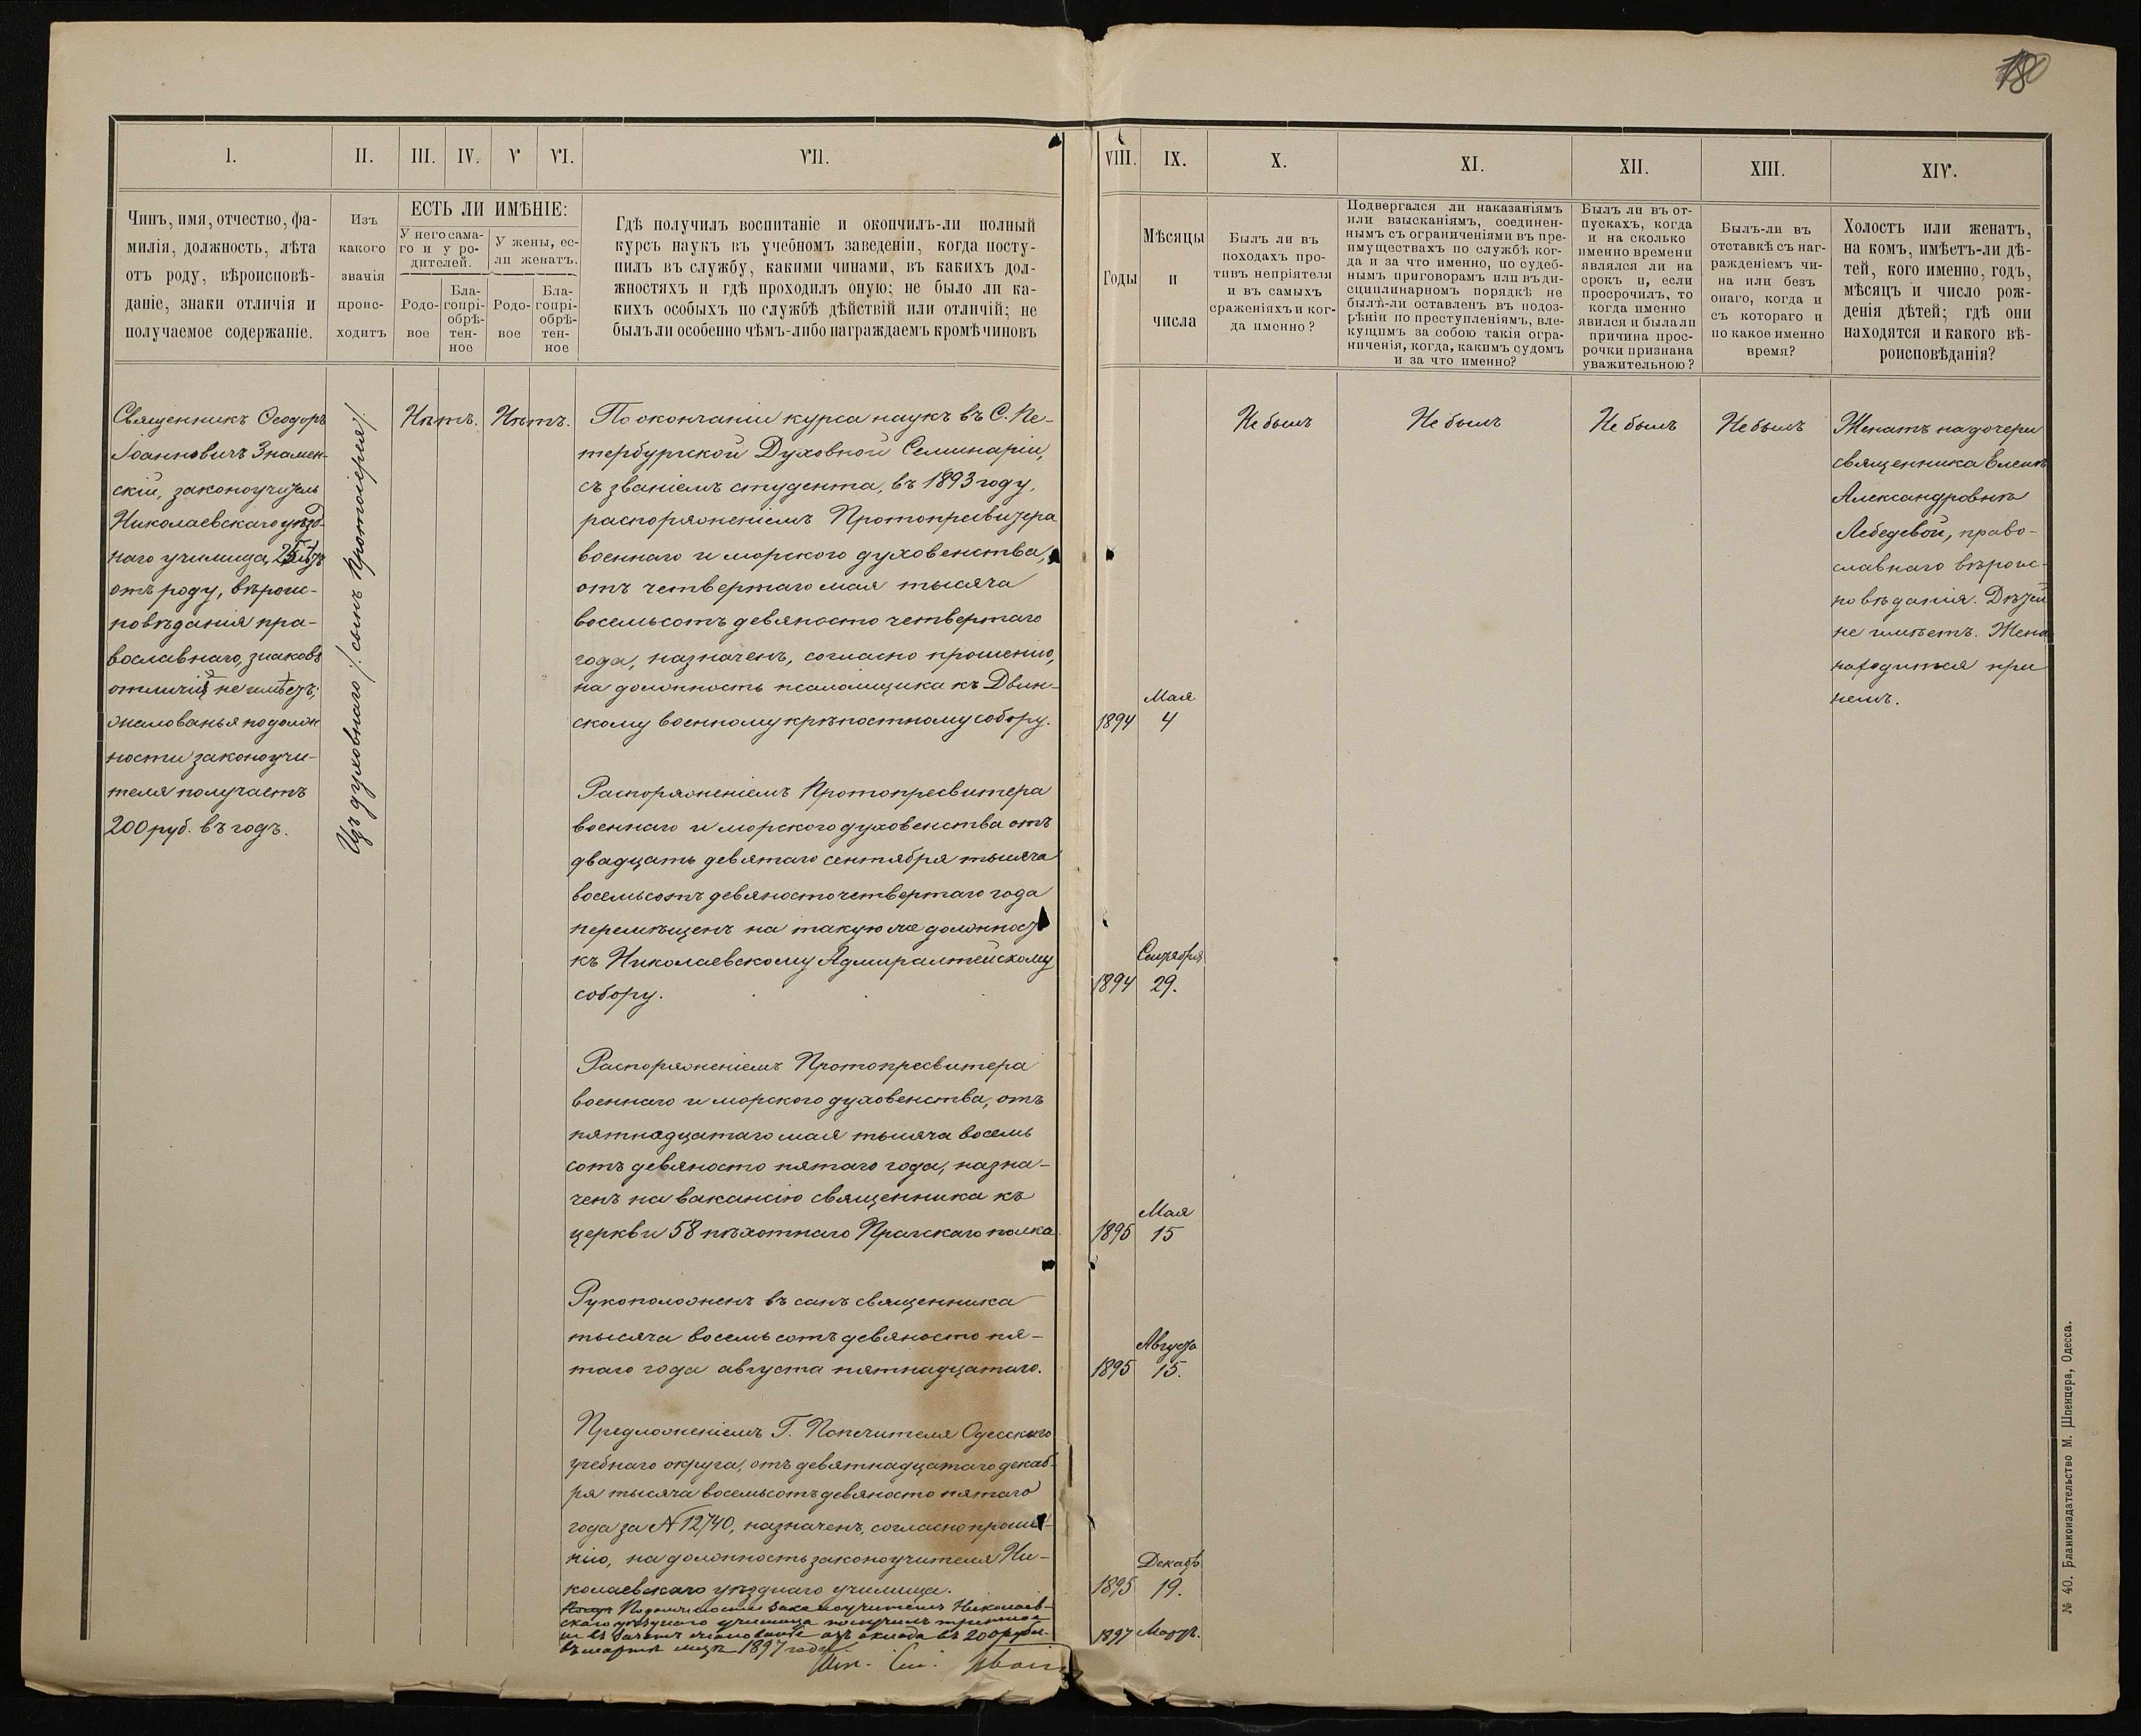 18
I.
II.
III.
IV.
V
VI.
VII.
VIII.
IX.
X.
XI.
XII.
XIII.
XIV.
Чинъ, имя, отчество, фа-
милія, должность, лѣта
отъ роду, вѣроисповѣ-
даніе, знаки отличія и
получаемое содержаніе.
Изъ
какого
званія
проис-
ходитъ
ЕСТЬ ЛИ ИМѢНІЕ:
У него сама-
го и у ро-
дителей.
У жены, ес-
ли женатъ.
Родо-
вое
Бла-
гопрі-
обрѣ-
тен-
ное
Родо-
вое
Бла-
гопрі-
обрѣ-
тен-
ное
Гдѣ получилъ воспитаніе и окончилъ-ли полный
курсъ наукъ въ учебномъ заведеніи, когда посту-
пилъ въ службу, какими чинами, въ какихъ дол-
жностяхъ и гдѣ проходилъ оную; не было ли ка-
кихъ особыхъ по службѣ дѣйствій или отличій; не
былъ ли особенно чѣмъ-либо награждаемъ кромѣ чиновъ
Годы
Мѣсяцы
и
числа
Былъ ли въ
походахъ про-
тивъ непріятеля
и въ самыхъ
сраженіяхъ и ког-
да именно?
Подвергался ли наказаніямъ
или взысканіямъ, соединен-
нымъ съ ограниченіями въ пре-
имуществахъ по службѣ ког-
да и за что именно, по судеб-
нымъ приговорамъ или въ ди-
сциплинарномъ порядкѣ не
былъ-ли оставленъ въ подоз-
рѣніи по преступленіямъ, вле-
кущимъ за собою такія огра-
ниченія, когда, какимъ судомъ
и за что именно?
Былъ ли въ от-
пускахъ, когда
и на сколько
именно времени
являлся ли на
срокъ и, если
просрочилъ, то
когда именно
явился и была ли
причина прос-
рочки признана
уважительною?
Былъ-ли въ
отставкѣ съ наг-
ражденіемъ чи-
на или безъ
онаго, когда и
съ котораго и
по какое именно
время?
Холостъ или женатъ,
на комъ, имѣетъ-ли дѣ-
тей, кого именно, годъ,
мѣсяцъ и число рож-
денія дѣтей; гдѣ они
находятся и какого вѣ-
роисповѣданія?
Священникъ Ѳеодоръ
Іоанновичъ Знамен-
скій, законоучитель
Николаевскаго уѣзд-
наго училища, лѣтъ
отъ роду, вѣроис-
повѣданія пра-
вославнаго, знаковъ
отличія не имѣетъ;
жалованья по долж
ности законоучи-
теля получаетъ
200 руб. въ годъ.
Изъ духовнаго /: сынъ Протоіерея :/
Нѣтъ.
Нѣтъ.
По окончаніи курса наукъ въ С. Пе-
тербургской Духовной Семинаріи,
съ званіемъ студента, въ 1893 году,
распоряженіемъ Протопресвитера
военнаго и морского духовенства,
отъ четвертаго мая тысяча
восемьсотъ девяносто четвертаго
года, назначенъ, согласно прошенію,
на должность псаломщика къ Двин-
скому военному крѣпостному собору.
1894
Мая
4
Распоряженіемъ Протопресвитера
военнаго и морского духовенства отъ
двадцать девятаго сентября тысяча
восемьсотъ девяносто четвертаго года
перемѣщенъ на такую же должность
къ Николаевскому Адмиралтейскому
собору.
1894
Сентября
29.
Распоряженіемъ Протопресвитера
военнаго и морского духовенства, отъ
пятнадцатаго мая тысяча восемь
сотъ девяносто пятаго года, назна-
ченъ на вакансію священника къ
церкви 58 пѣхотнаго Прагскаго полка.
1895
Мая
15
Рукоположенъ въ санъ священника
тысяча восемьсотъ девяносто пя-
таго года августа пятнадцатаго.
1895
Августа
15.
Предложеніемъ Г. Попечителя Одесскаго
учебнаго округа, отъ девятнадцатаго декаб-
ря тысяча восемьсотъ девяносто пятаго
года за № 12740, назначенъ, согласно проше-
нію, на должность законоучителя Ни-
колаевскаго уѣзднаго училища.
1895
Декабр
19.
По должности законоучителя Николаев-
скаго уѣзднаго училища получилъ
не въ зачетъ жалованье изъ оклада въ 200 руб.
въ мартѣ мцѣ 1897 года.
1897
Мартъ.
Не былъ
Не былъ
Не былъ
Не былъ
Женатъ на дочери
священника Еленѣ
Александровнѣ
Лебедевой, право-
славнаго вѣроис-
повѣданія. Дѣтей
не имѣетъ. Жена
находится при
немъ.
№ 40. Бланкоиздательство М. Шпенцера, Одесса.